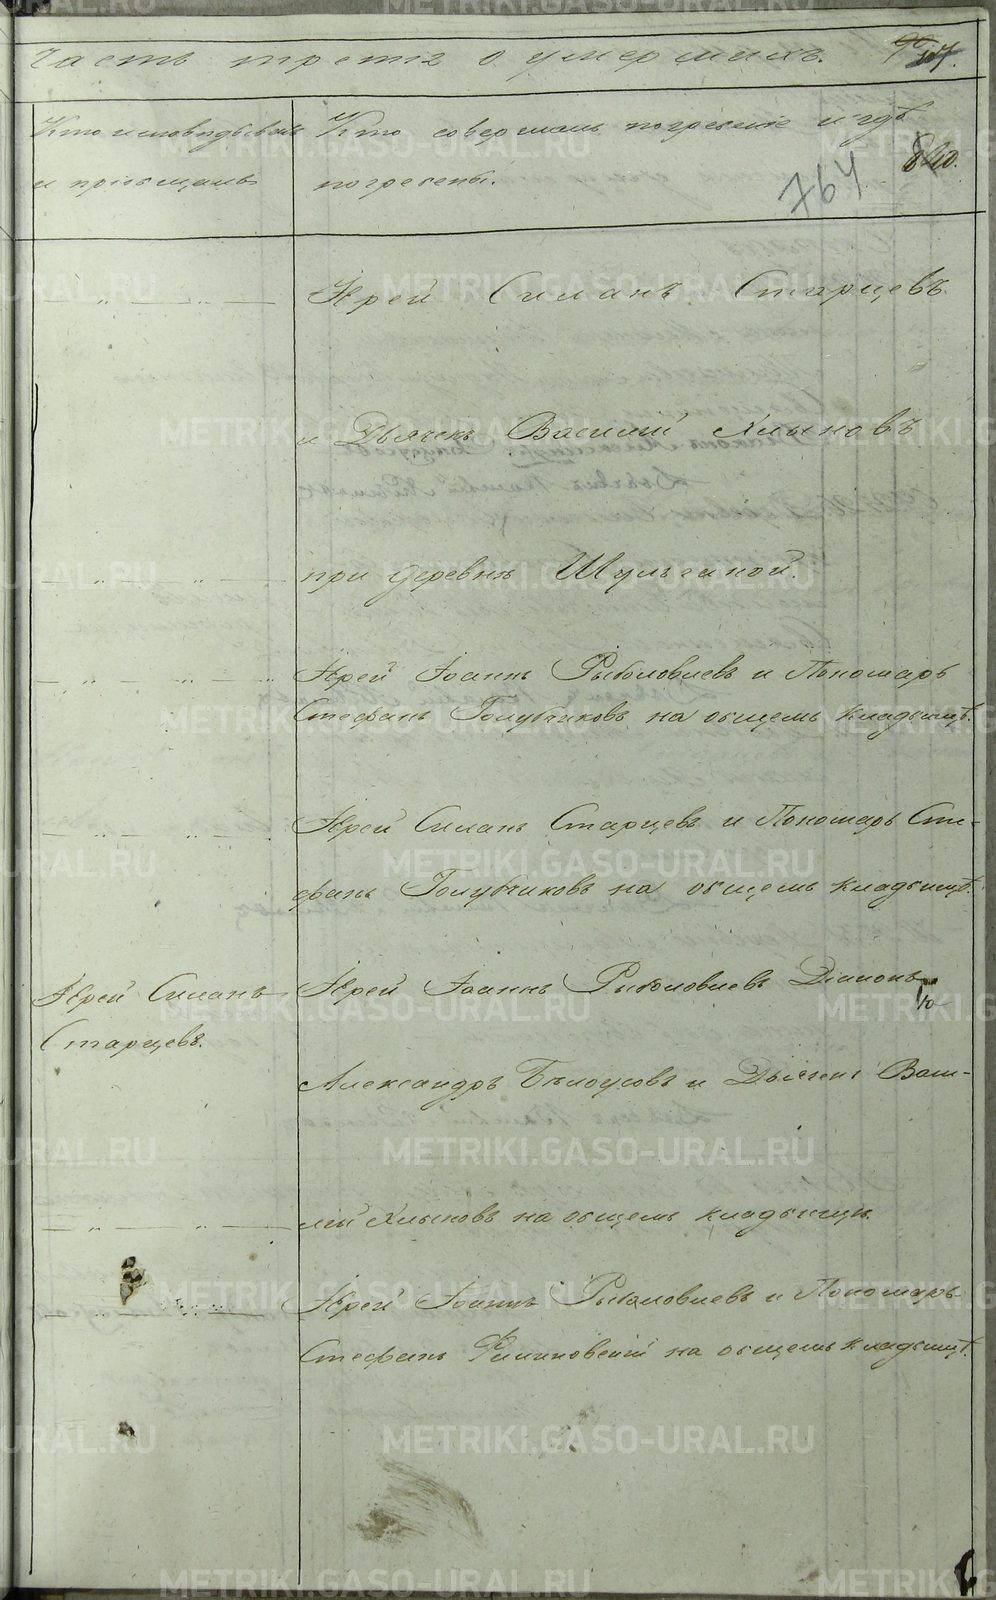 Часть третія о умершихъ.
107.
Кто исповѣдывалъ
и пріобщалъ
Кто совершалъ погребеніе и гдѣ
погребены.
764
820.
Іерей Силанъ Старцевъ
и Дьячекъ Василій Хлыновъ
при деревнѣ Шульгиной.
Іерей Іоаннъ Рыболовлевъ и Пономарь
Стефанъ Голубчиковъ на общемъ кладбищѣ.
Іерей Силанъ Старцевъ и Пономарь Сте-
фанъ Голубчиковъ на общемъ кладбищѣ.
Іерей Силанъ
Старцевъ.
Іерей Іоаннъ Рыболовлевъ Діаконъ
Александръ Бѣлоусовъ и Дьячекъ Васи-
лій Хлыновъ на общемъ кладбищѣ.
Іерей Іоаннъ Рыболовлевъ и Пономарь
Стефанъ на общемъ кладбищѣ.
METRIKI.GASO-URAL.RU